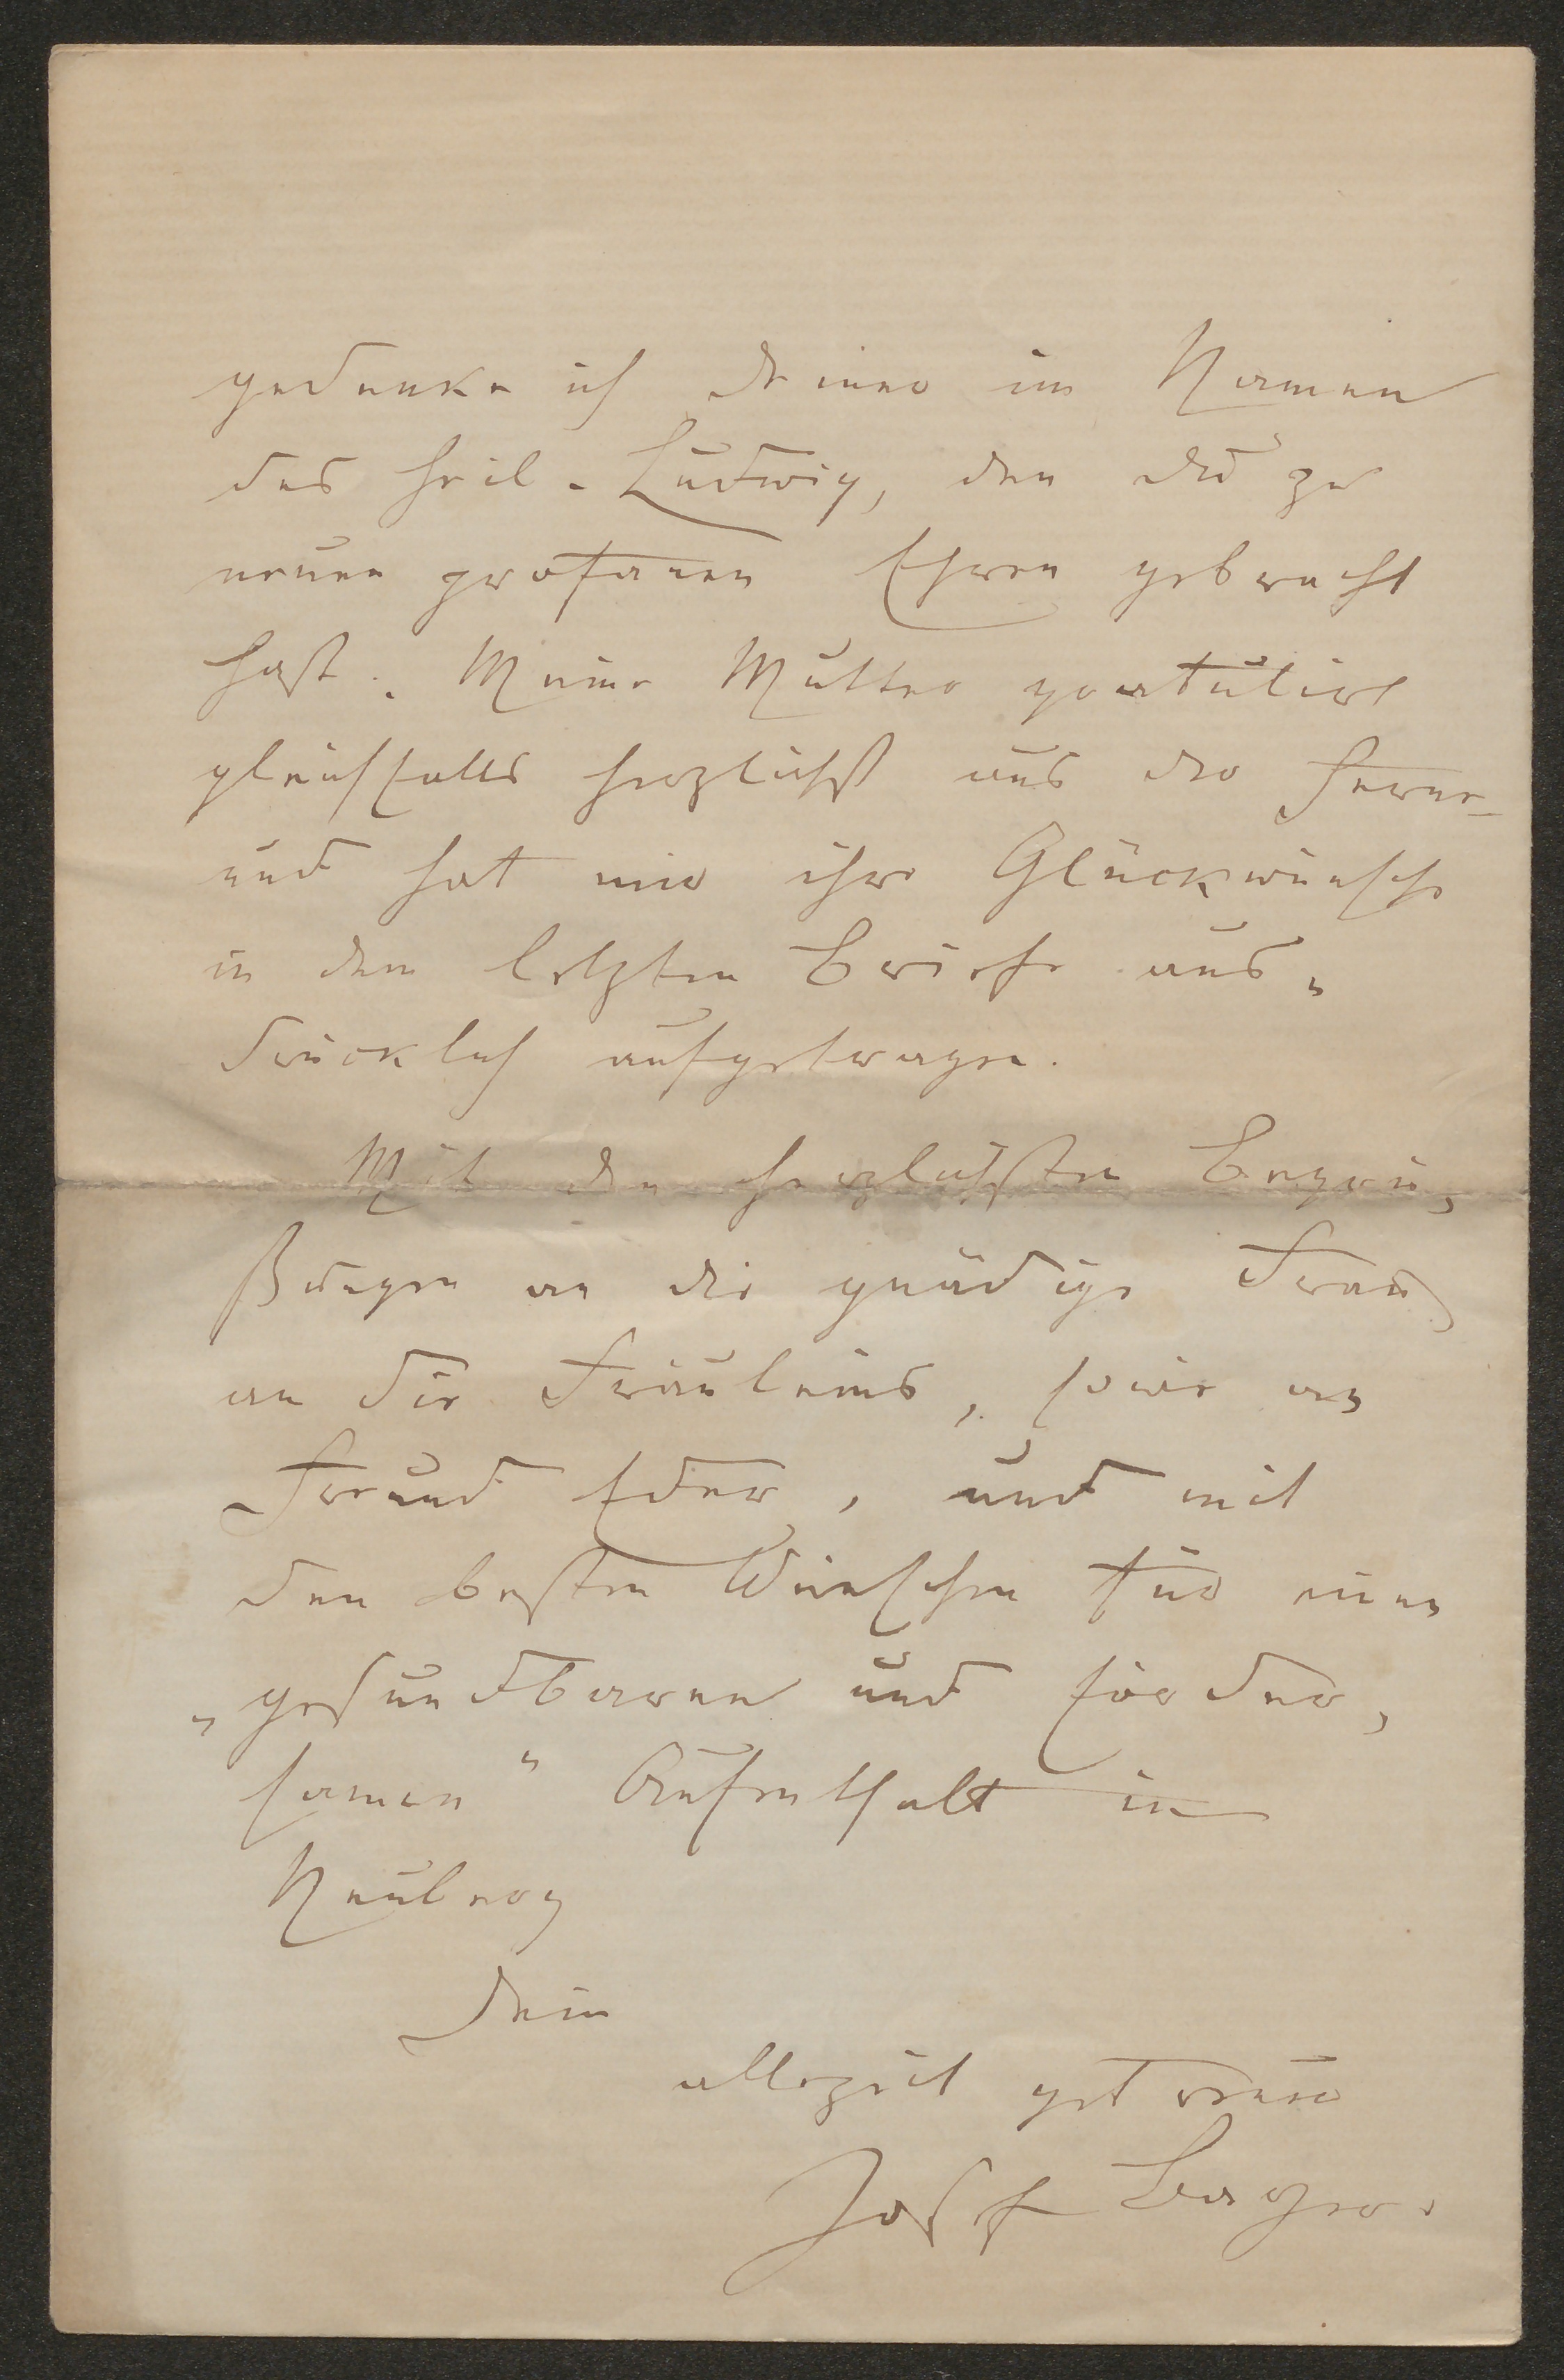 gedenke ich deiner im Namen
des heil. Ludwig, den du zu
neuen profanen Ehren gebracht
hast. Meine Mutter gratulirt
gleichfalls herzlichst aus der Ferne
und hat mir ihre Glückwünsche
in dem letzten Briefe aus„
drücklich aufgetragen.
Mit den herzlichsten Begrü„
ßungen an die gnädige Frau,
an die Fräuleins, sowie an
Freund Eder, und mit
den besten Wünschen für einen
„gesundbaren und förder„
samen“ Aufenthalt in
Neuberg
dein
allezeit getreuer
Josef Bayer.